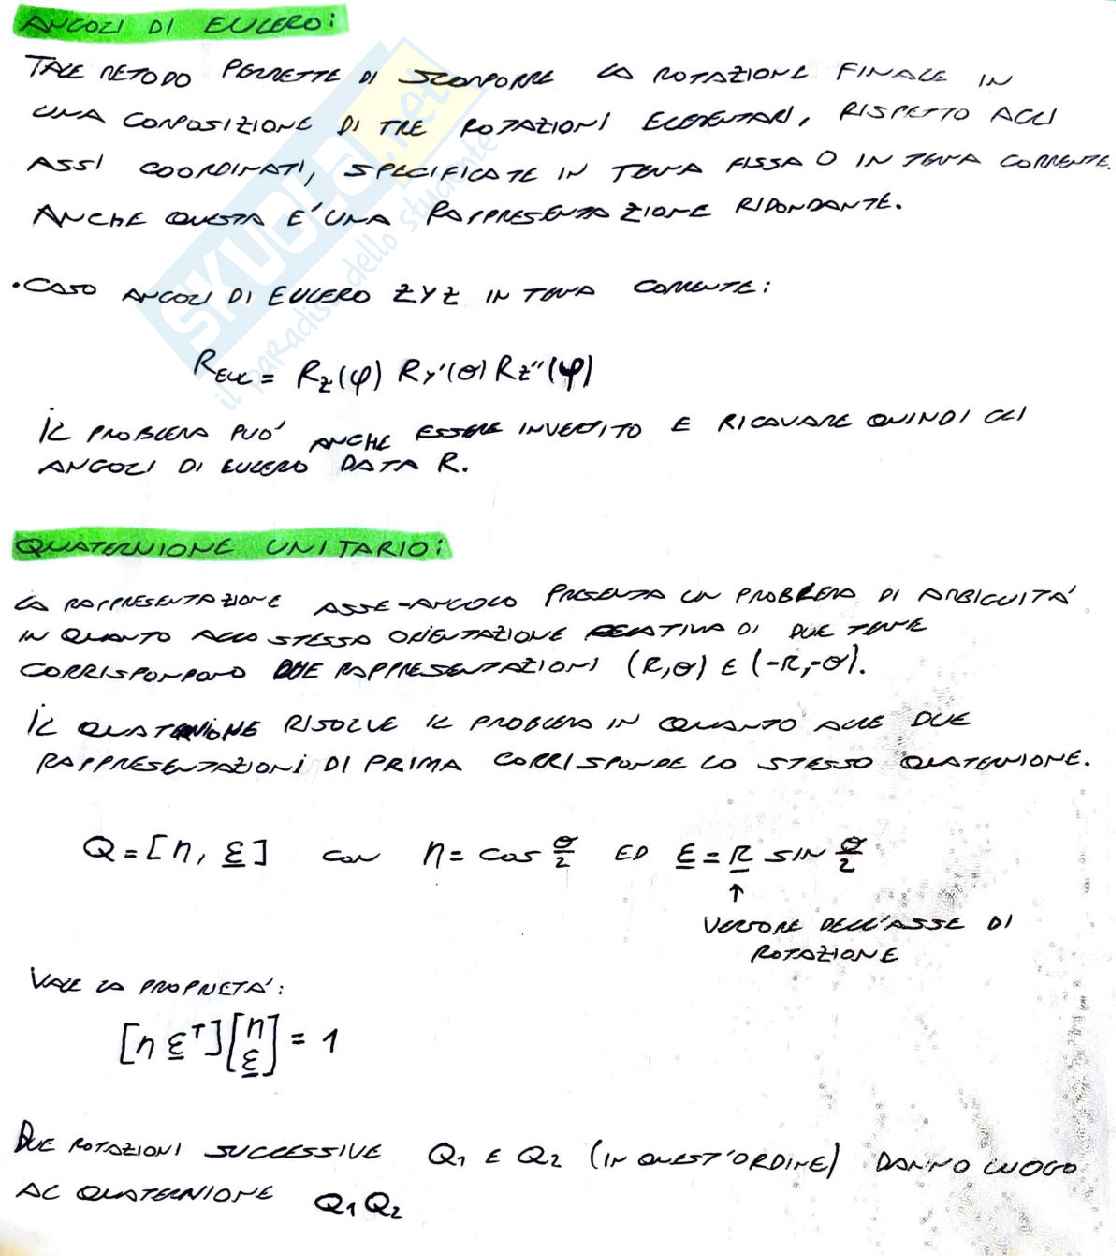 ANGOLI DI EULERO:
TALE METODO PERMETTE DI SCOMPORRE LA ROTAZIONE FINALE IN
UNA COMPOSIZIONE DI TRE ROTAZIONI ELEMENTARI, RISPETTO AGLI
ASSI COORDINATI, SPECIFICATE IN TERNA FISSA O IN TERNA CORRENTE.
ANCHE QUESTA E' UNA RAPPRESENTAZIONE RIDONDANTE.
• CASO ANGOLI DI EULERO ZYZ IN TERNA CORRENTE:
R_EUL = R_z(φ) R_y'(θ) R_z''(ψ)
IL PROBLEMA PUO' ANCHE ESSERE INVERTITO E RICAVARE QUINDI GLI
ANGOLI DI EULERO DATA R.
QUATERNIONE UNITARIO:
LA RAPPRESENTAZIONE ASSE-ANGOLO PRESENTA UN PROBLEMA DI AMBIGUITA'
IN QUANTO ALLO STESSO ORIENTAZIONE RELATIVA DI DUE TERNE
CORRISPONDONO DUE RAPPRESENTAZIONI (R,θ) E (-R,-θ).
IL QUATERNIONE RISOLVE IL PROBLEMA IN QUANTO ALLE DUE
RAPPRESENTAZIONI DI PRIMA CORRISPONDE LO STESSO QUATERNIONE.
Q = [η, ε] CON η = cos θ/2 ED ε = R SIN θ/2
↑
VERSORE DELL'ASSE DI
ROTAZIONE
VALE LA PROPRIETA':
[η ε^T][η ε] = 1
DUE ROTAZIONI SUCCESSIVE Q1 E Q2 (IN QUEST'ORDINE) DANNO LUOGO
AL QUATERNIONE Q1 Q2
SKUOLA.net
il paradiso dello studente